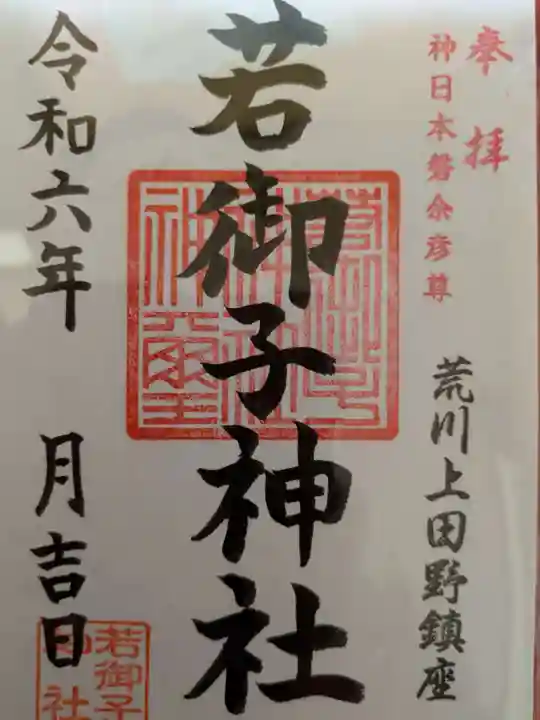 奉拝
神日本磐余彦尊
荒川上田野鎮座
若御子神社
令和六年 月吉日
若御子
社